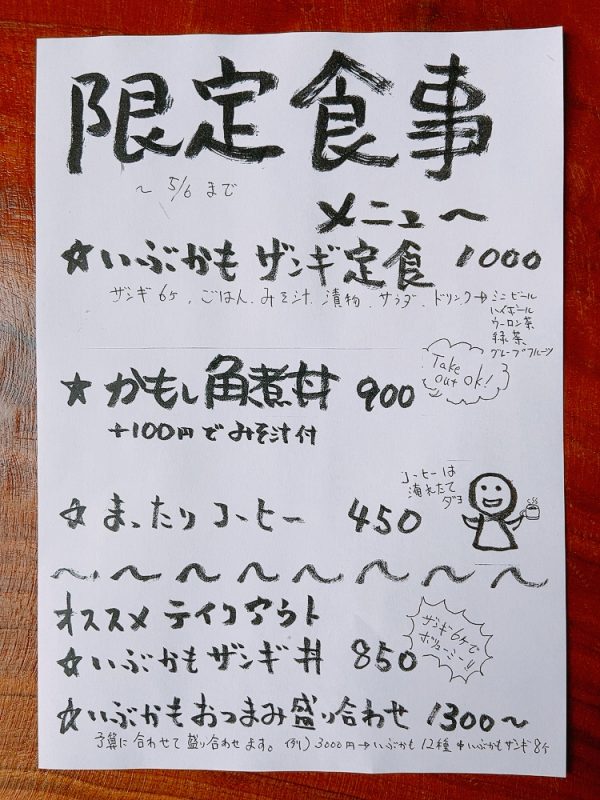 限定食事
～ 5/6 まで
メニュー
☆いぶかも ザンギ定食 1000
ザンギ6ケ、ごはん、みそ汁、漬物、サラダ、ドリンク→ミニビール
ハイボール
ウーロン茶
緑茶、
グレープフルーツ
Take out OK!
★かもし角煮丼 900
+100円でみそ汁付
コーヒーは
淹れたて
ダヨ
☆まったりコーヒー 450
～.～～～～～～～
オススメ テイクアウト
☆いぶかもザンギ丼 850
ザンギ6ケで
ボリューミー!!
☆いぶかもおつまみ盛り合わせ 1300～
予算に合わせて盛り合わせます。(例) 3000円→いぶかも12種+いぶかもザンギ8ケ